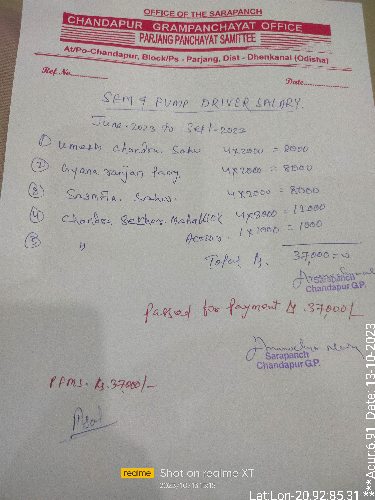 OFFICE OF THE SARAPANCH
CHANDAPUR GRAMPANCHAYAT OFFICE
PARJANG PANCHAYAT SAMITTEE
At/Po-Chandapur, Block/Ps - Parjang, Dist - Dhenkanal (Odisha)
Ref.No.
Date
SEM & PUMP DRIVER SALARY.
June-2023 to Sept-2023
① Umesh Chandra Sahu 4x2000 = 8000
② Gyana ranjan 4x2000 = 8000
③ Sasmita 4x2000 = 8000
④ Chandra Sekhar Mahallick 4x3000 = 12000
⑤ " 1x1000 = 1000
Total Rs. 37,000=00
Chandapur G.P.
Passed for Payment Rs. 37,000/-
Sarapanch
Chandapur G.P.
PFMS. Rs. 37,000/-
realme Shot on realme XT
2023/10/13
Lat Lon-20.92:85.31 ***Acur:6.91 Date: 13-10-2023